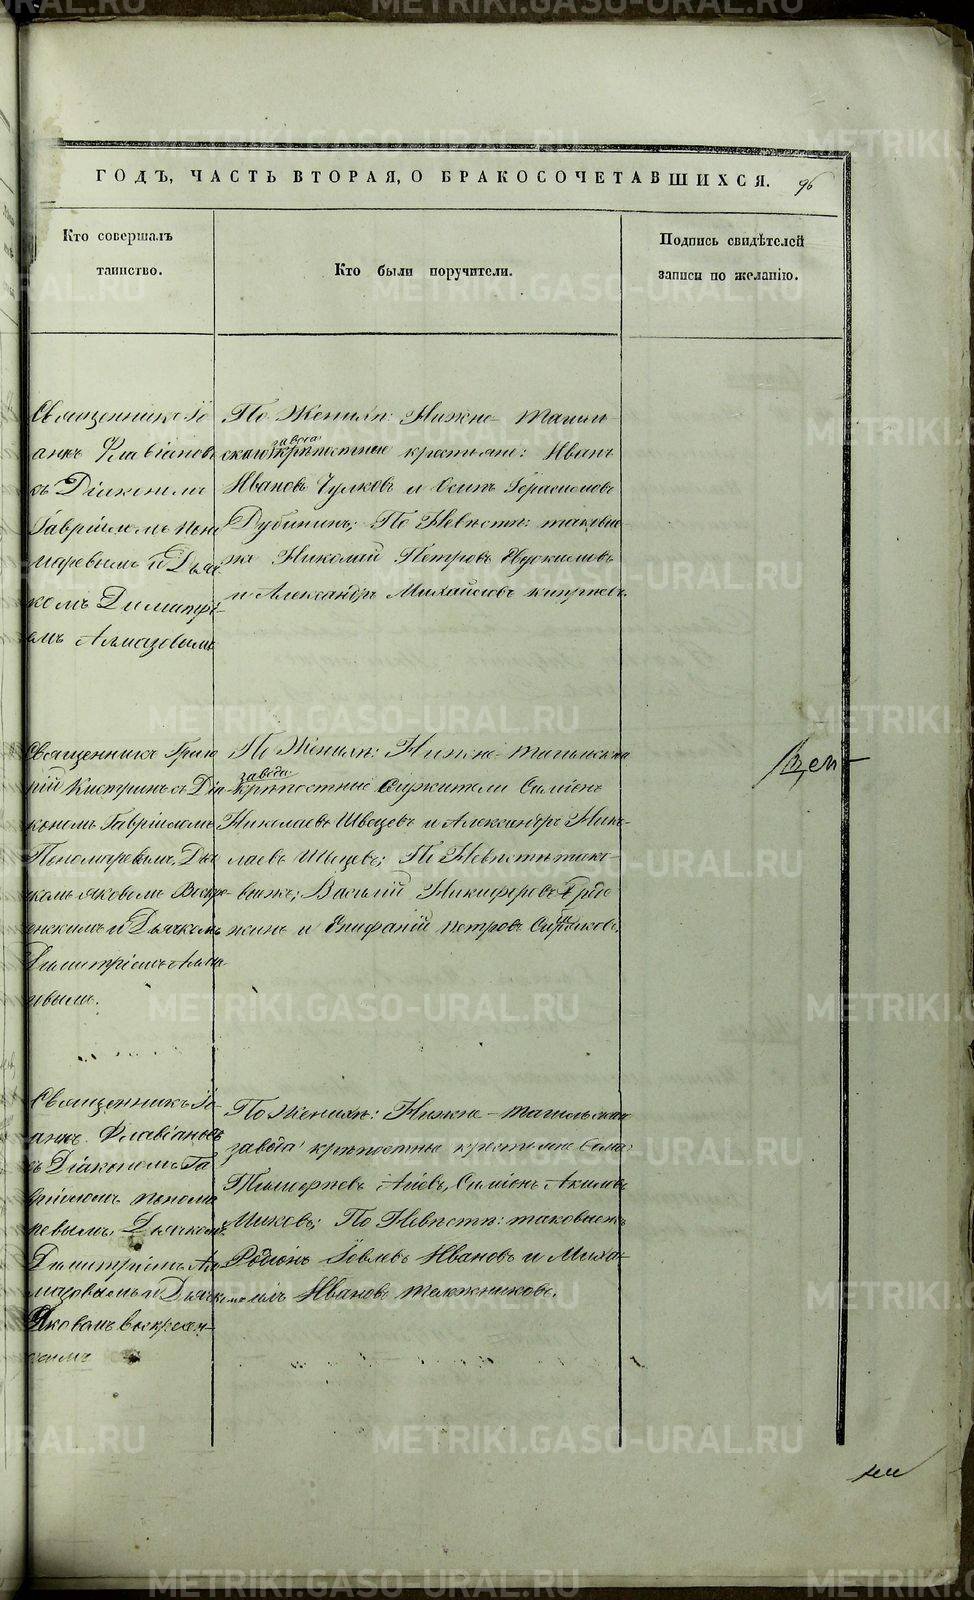 ГОДЪ, ЧАСТЬ ВТОРАЯ, О БРАКОСОЧЕТАВШИХСЯ.
96
Кто совершалъ
таинство.
Кто были поручители.
Подпись свидѣтелей
записи по желанію.
Священникъ Іо-
аннъ Флавіановъ
съ Діакономъ
Гавріиломъ Поно
маревымъ и Дьяч
комъ Димитрі-
емъ Алмазовымъ
По Женихѣ: Нижне-Тагиль-
скаго завода крѣпостные крестьяне: Иванъ
Ивановъ Чулковъ и Осипъ Герасимовъ
Дубининъ; По Невѣстѣ: таковые
же Николай Петровъ
и Александръ Михайловъ
Священникъ Григо
рій Кистринъ съ Діа-
кономъ Гавріиломъ
Пономаревымъ, Дья
комъ Яковомъ Воскре-
сенскимъ и Дьячкомъ
Димитріемъ Алма
зовымъ.
По Женихѣ: Нижне-Тагильскаго
завода крѣпостные служители Симіонъ
Николаевъ Швецовъ и Александръ Нико-
лаевъ Швецовъ; По Невѣстѣ тако-
выеже; Василій Никифоровъ
и Епифаній Петровъ
Священникъ Іо-
аннъ Флавіановъ
съ Діакономъ Га
вріиломъ Понома
ревымъ, Дьячкомъ
Димитріемъ Ал
мазовымъ и Дьячкомъ
Яковомъ Воскресен-
скимъ
По Женихѣ: Нижне-Тагильскаго
завода крѣпостные крестьяне
Симіонъ Акимовъ
По Невѣстѣ: таковыежъ
Родіонъ Іевлевъ Ивановъ и Миха-
илъ Ивановъ
METRIKI.GASO-URAL.RU